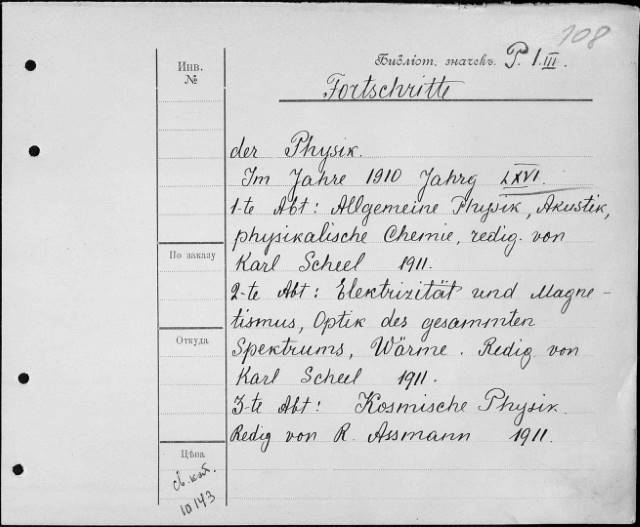 108
Инв.
№
Библіот. значекъ. P. I.III.
Fortschritte
der Physik.
Im Jahre 1910 Jahrg LXVI.
1-te Abt: Allgemeine Physik, Akustik,
physikalische Chemie, redig. von
По заказу
Karl Scheel 1911.
2-te Abt: Elektrizität und Magne-
tismus, Optik des gesammten
Откуда
Spektrums, Wärme. Redig von
Karl Scheel 1911.
3-te Abt: Kosmische Physik.
Redig von R. Assmann 1911.
Цѣна
св. кат.
10143